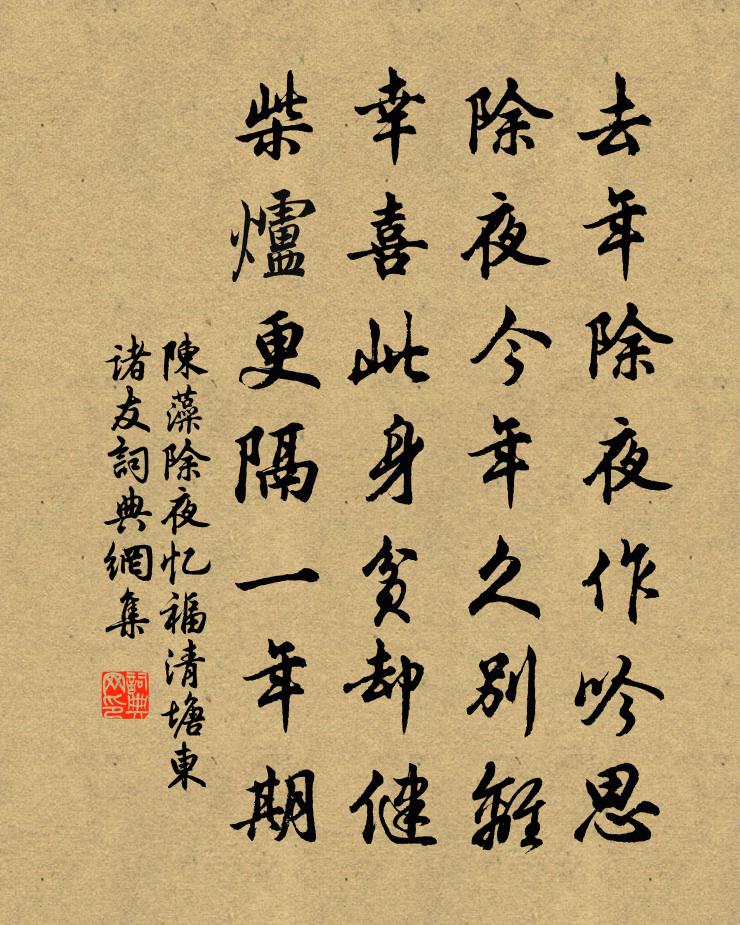 去年除夜作吟思
除夜今年久別離
幸喜此身貧却健
柴爐更隔一年期
陳藻除夜忆福清塘東
诸友詞典網集
詞典网印